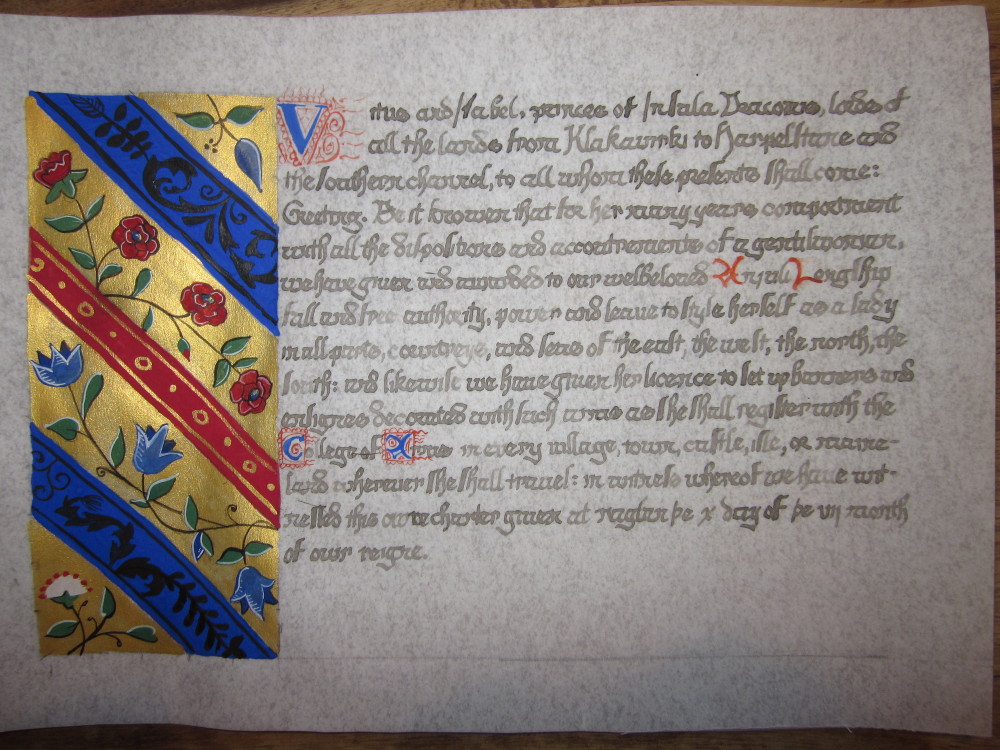 Vitus and Isabel, princes of Insula Draconis, lordes of
all the landes from Klakavirki to Harpelstane and
the southern channel, to all whom these presents shall come:
Greeting. Be it knowen that for her many years comportment
with all the dispositions and accoutrements of a gentilwoman,
we have given and awarded to our welbeloved Lengship
full and free authority, power and leave to style herself as a lady
in all parts, countreys, and seas of the east, the west, the north, the
south: and likewise we have given her licence to set up banners and
ensignes decorated with such arms as she shall register with the
College of Arms in every village, town, castle, isle, or maine-
land wherever she shall travel: in witness whereof we have wit-
nessed this owre charter given at raglan þe x day of þe vij month
of our reigne.